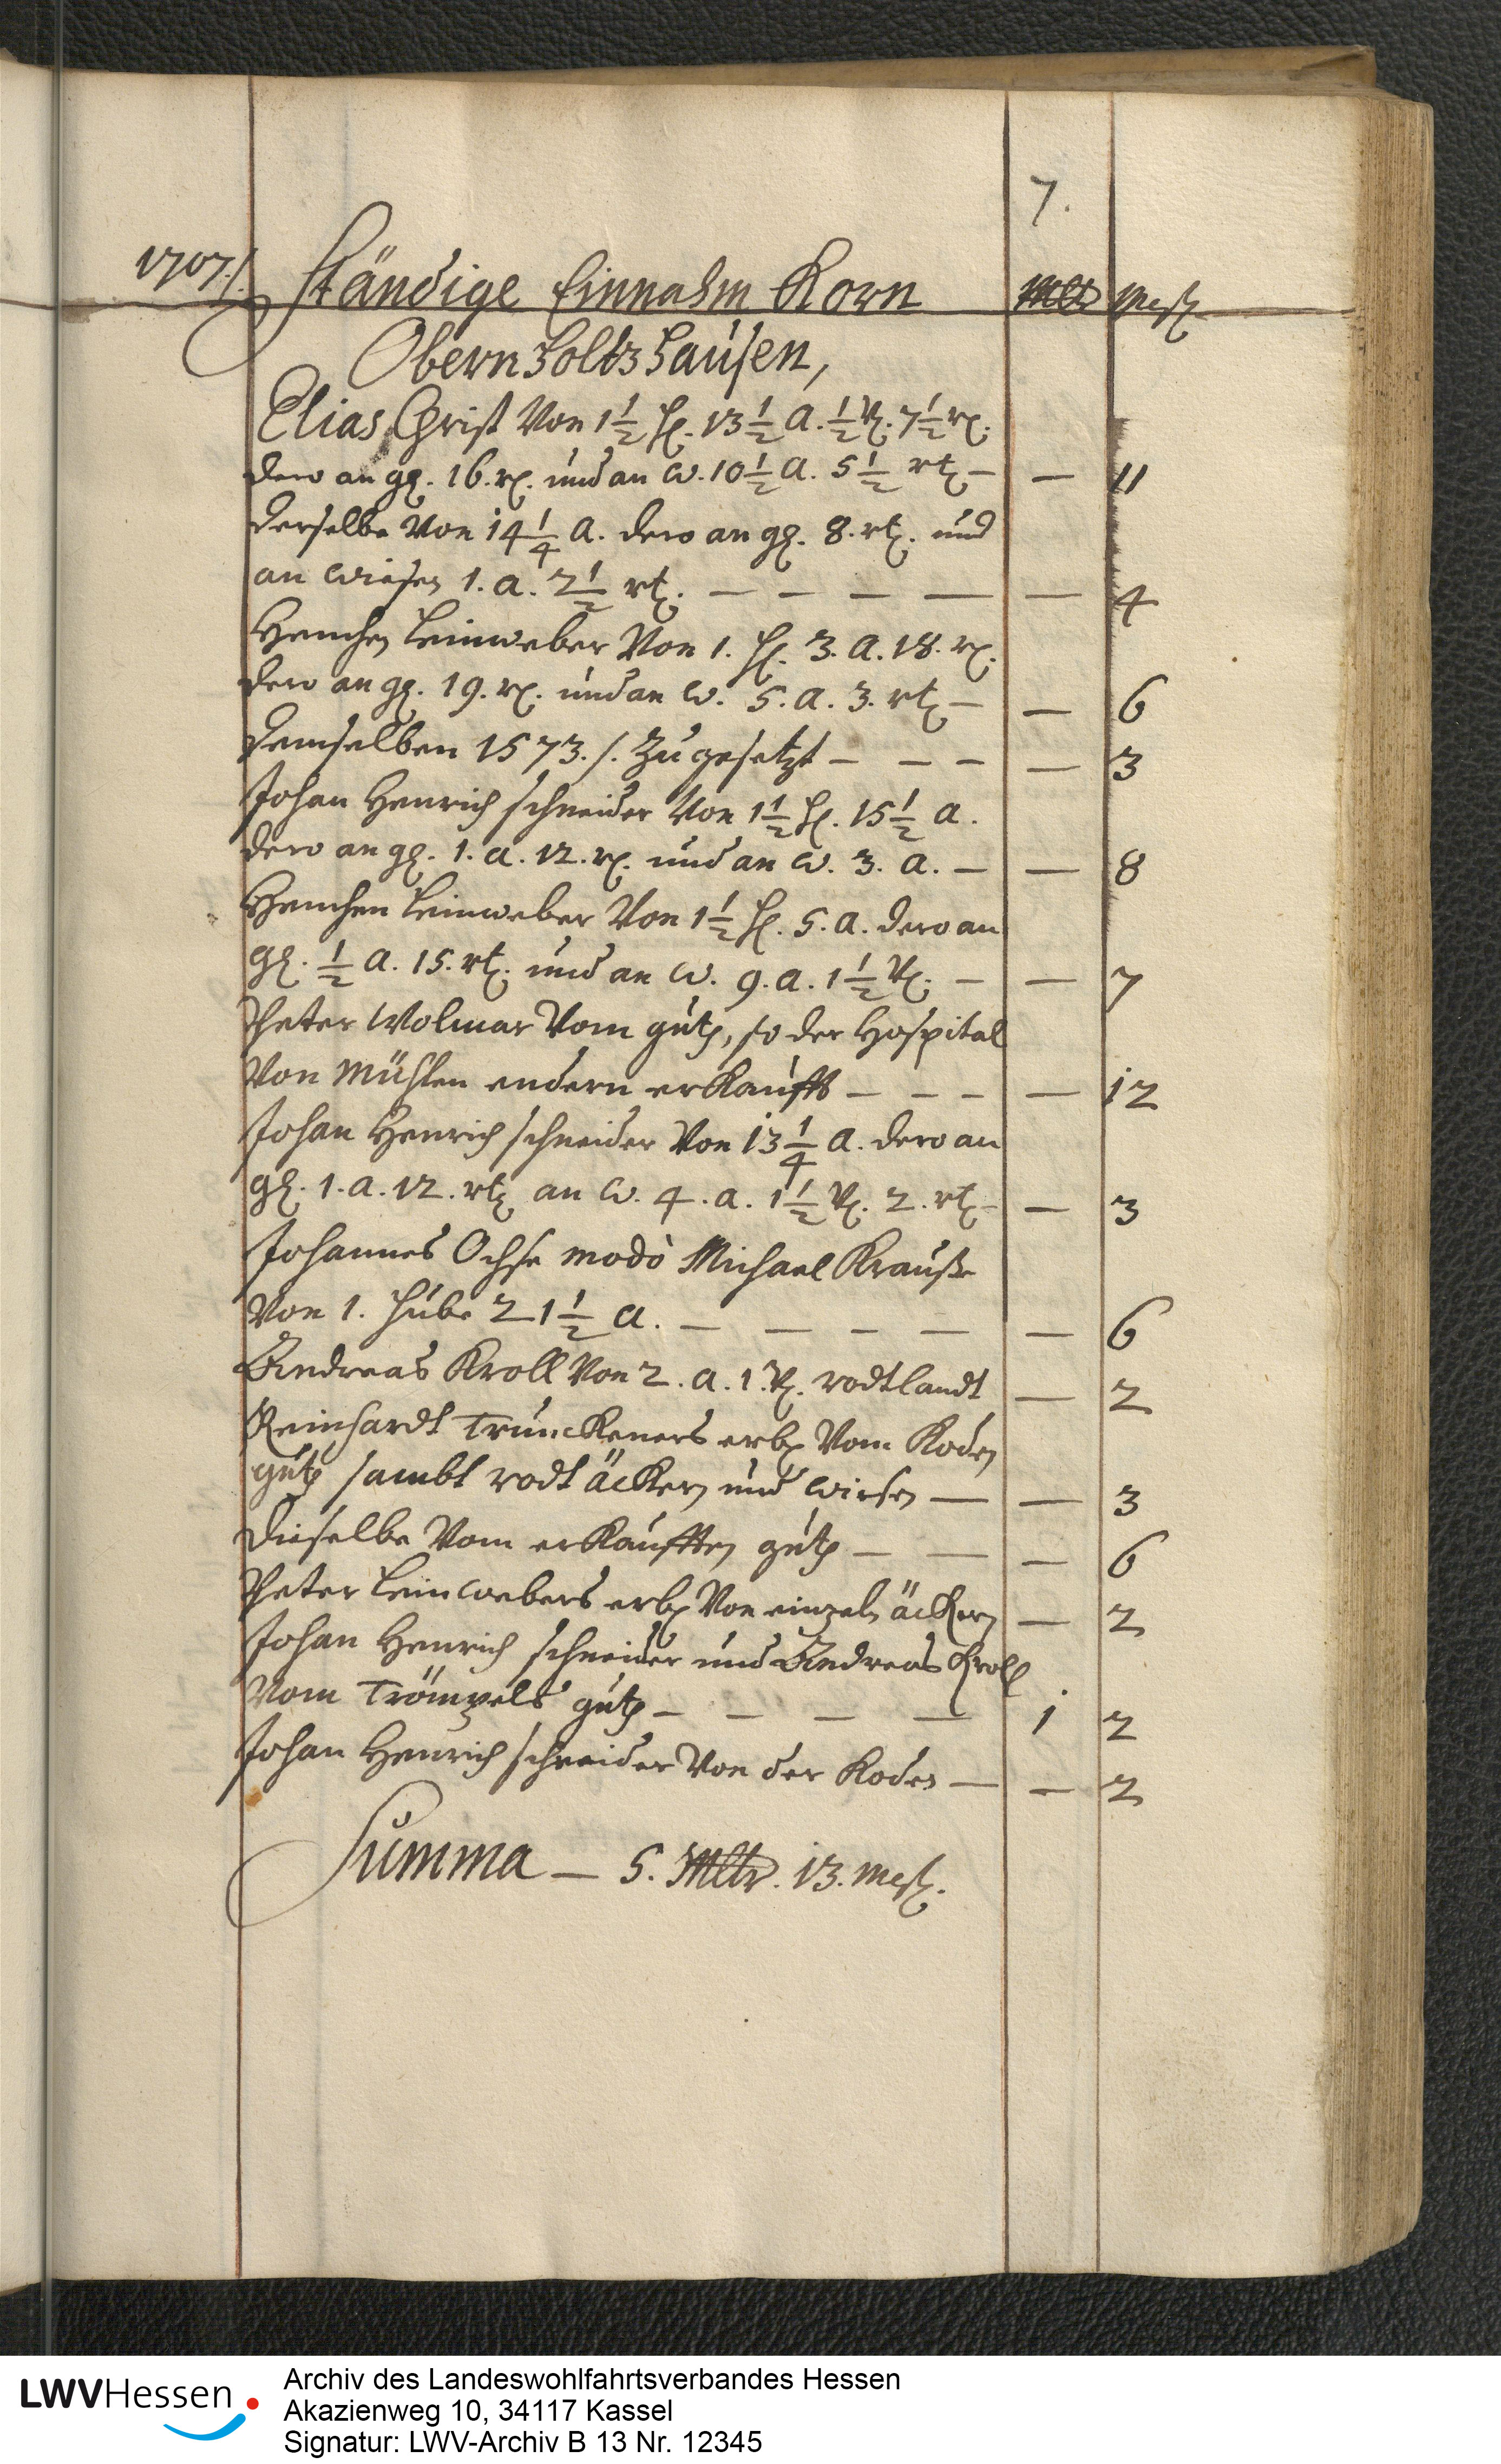 7.
1707./. Ständige Einnahm Korn Mltr Mest.
Obernholtzhausen,
Elias Christ Von 1 1/2 H. 13 1/2 A. 1/2 V. 7 1/2 rt.
dero an gg. 16. rt. und an W. 10 1/2 A. 5 1/2 rt. — — 11
Derselbe Von 14 1/4 A. dero an gg. 8. rt. und
an Wiesen 1. A. 2 1/2 rt. — — — — — 4
Henchen Leinweber Von 1. H. 3. A. 18. rt.
dero an gg. 19. rt. und an W. 5. A. 3. rt. — — 6
Demselben 1573./. Zugesetzt — — — — 3
Johan Henrich Schneider Von 1 1/2 H. 15 1/2 A.
dero an gg. 1. A. 12. rt. und an W. 3. A. — — 8
Henchen Leinweber Von 1 1/2 H. 5. A. dero an
gg. 1/2 A. 15. rt. und an W. 9. A. 1 1/2 V. — — 7
Peter Wolmar Vom guth, so der Hospital
Von Mühlen endern erkaufft — — — — 12
Johan Henrich Schneider Von 13 1/4 A. dero an
gg. 1. A. 12. rt. an W. 4. A. 1 1/2 V. 2. rt. — — 3
Johannes Ochse modò Michael Krauße
Von 1. Hube 21 1/2 A. — — — — — 6
Andreas Kroll Von 2. A. 1. V. rodtlandt — 2
Reinhardt Trunckeners erben Vom Koden
guth sambt rodt äckern und Wiesen — — 3
Dieselbe Vom erkaufften guth — — — 6
Peter Leinwebers erben Von einzeln äckern — 2
Johan Henrich Schneider und Andreas Kroll
Vom Trömpels guth — — — — 1 2
Johan Henrich Schneider Von der Koden — — 2
Summa — 5. Mltr. 13. Mest.
LWVHessen
Archiv des Landeswohlfahrtsverbandes Hessen
Akazienweg 10, 34117 Kassel
Signatur: LWV-Archiv B 13 Nr. 12345